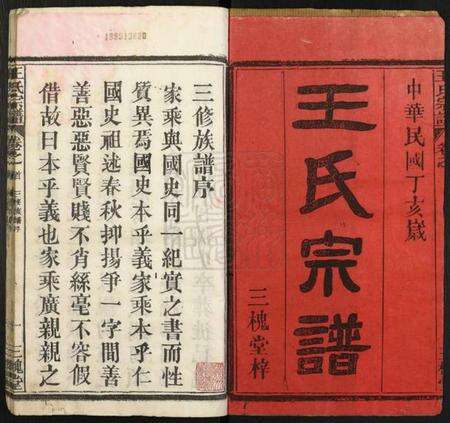 中華民國丁亥歲
王氏宗譜
三槐堂梓
三修族譜序
家乘與國史同一紀實之書而性
質異焉國史本乎義家乘本乎仁
國史祖述春秋抑揚爭一字間善
善惡惡賢賢賤不肖絲毫不容假
借故曰本乎義也家乘廣親親之
王氏宗譜
三槐堂